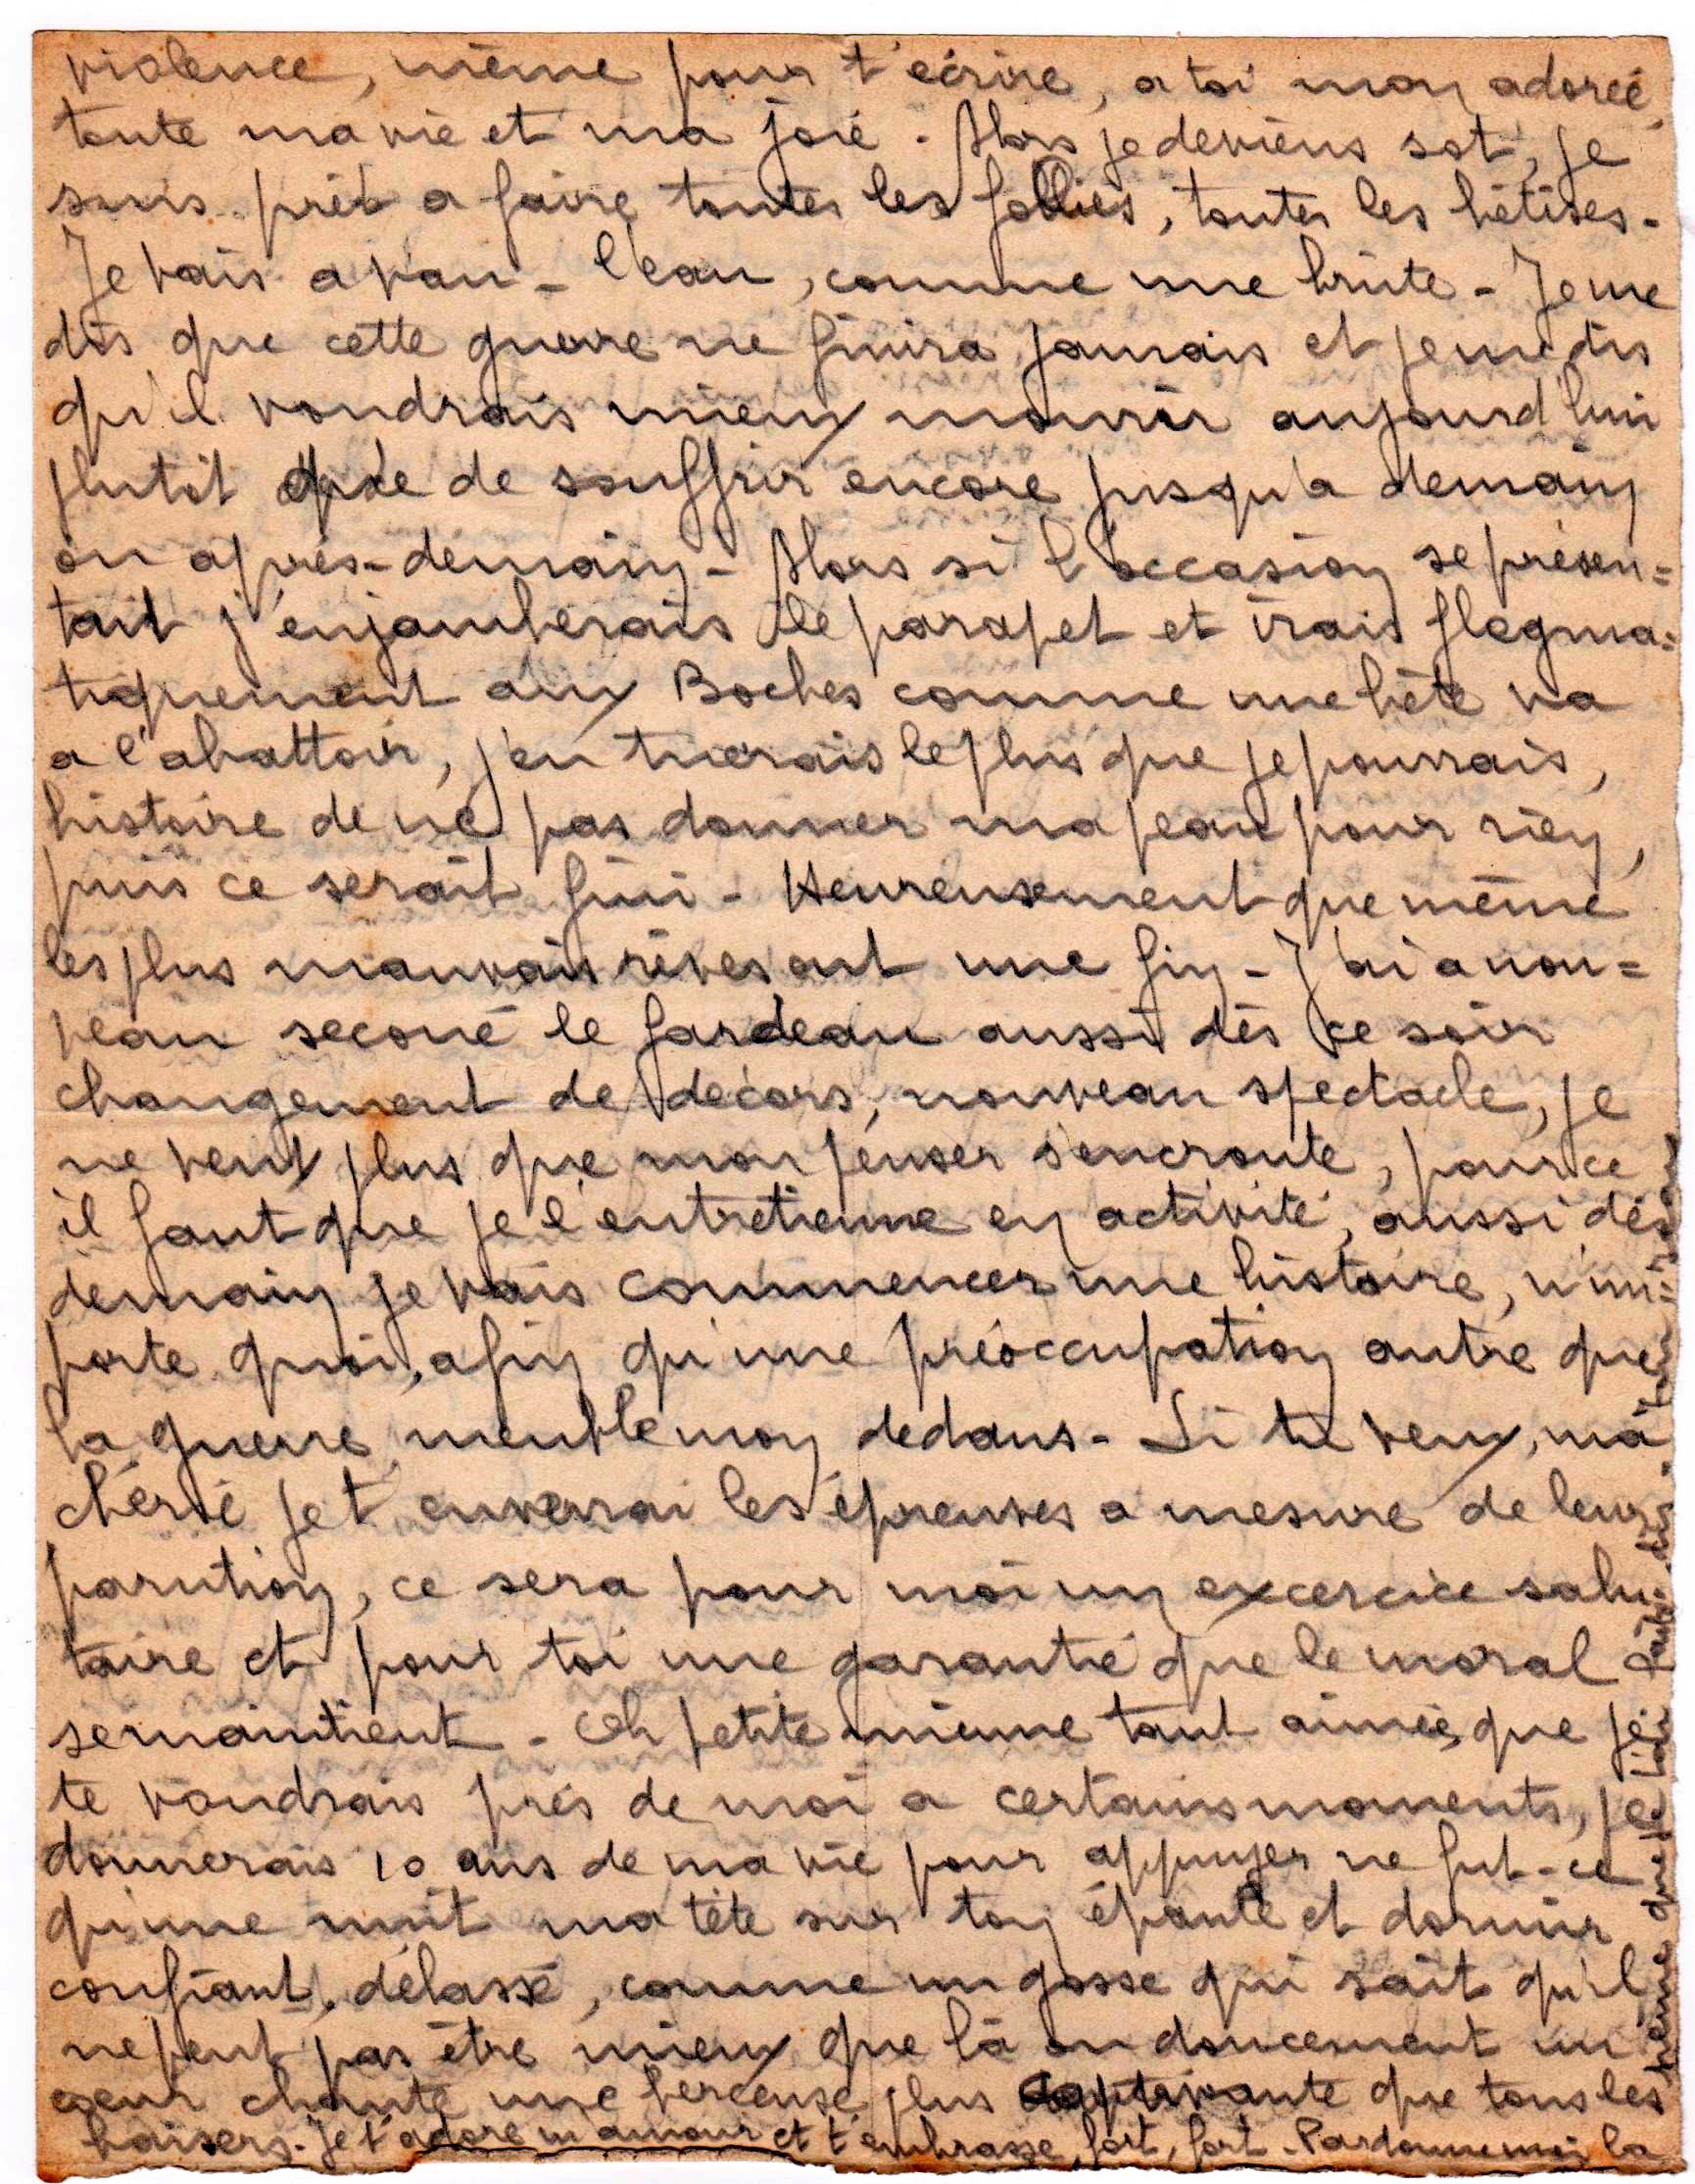 violence, même pour t'écrire, a toi mon adorée,
toute ma vie et ma joie. Alors je deviens sot, je
suis prêt a faire toutes les follies, toutes les bêtises -
Je vais a vau-l'eau, comme une brute - Je me
dis que cette guerre ne finira jamais et je me dis
qu'il voudrais mieux mourir aujourd'hui
plutôt que de souffrir encore jusqu'a demain
ou après-demain - Alors si l'occasion se présen=
tait j'enjamberais le parapet et irais flegma=
tiquement aux Boches comme une bête va
a l'abattoir, j'en tuerais le plus que je pourrais,
histoire de ne pas donner ma peau pour rien,
puis ce serait fini - Heureusement que même
les plus mauvais rêves ont une fin - J'ai a nou=
veau secoué le fardeau aussi dès ce soir
changement de décors, nouveau spectacle, je
ne veux plus que mon penser s'encroute, pour ce
il faut que je l'entretienne en activité, aussi dès
demain je vais commencer une histoire, n'im=
porte quoi, afin qu'une préoccupation autre que
la guerre meuble mon dedans - Si tu veux, ma
chérie je t'enverrai les épreuves a mesure de leur
parution, ce sera pour moi un excercice salu
taire et pour toi une garantie que le moral
se maintient - Oh petite mienne tant aimée, que je
te voudrais près de moi a certains moments, je
donnerais 10 ans de ma vie pour appuyer ne fut-ce
qu'une nuit ma tête sur ton épaule et dormir
confiant, délassé, comme un gosse qui sait qu'il
ne peut pas être mieux que là ou doucement un
cœur chante une berceuse plus captivante que tous les
baisers. Je t'adore m'amour et t'embrasse fort, fort - Pardonne moi la
peine que je t'ai faite. dis.